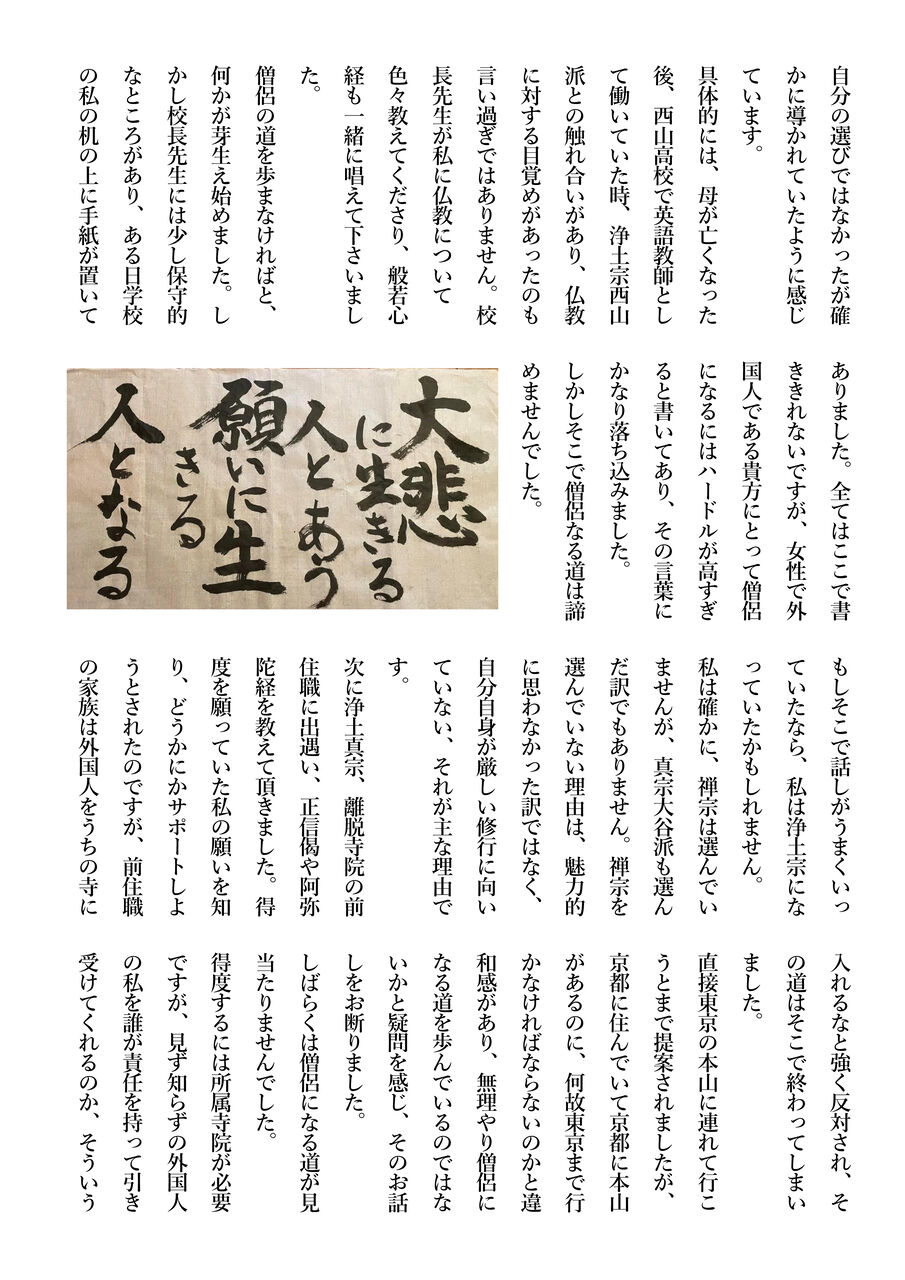 自分の選びではなかったが確
かに導かれていたように感じ
ています。
具体的には、母が亡くなった
後、西山高校で英語教師とし
て働いていた時、浄土宗西山
派との触れ合いがあり、仏教
に対する目覚めがあったのも
言い過ぎではありません。校
長先生が私に仏教について
色々教えてくださり、般若心
経も一緒に唱えて下さいまし
た。
僧侶の道を歩まなければと、
何かが芽生え始めました。し
かし校長先生には少し保守的
なところがあり、ある日学校
の私の机の上に手紙が置いて
ありました。全てはここで書
ききれないですが、女性で外
国人である貴方にとって僧侶
になるにはハードルが高すぎ
ると書いてあり、その言葉に
かなり落ち込みました。
しかしそこで僧侶なる道は諦
めませんでした。
大悲
に生きる
人とあう
願いに生
きる
人となる
もしそこで話しがうまくいっ
ていたなら、私は浄土宗にな
っていたかもしれません。
私は確かに、禅宗は選んでい
ませんが、真宗大谷派も選ん
だ訳でもありません。禅宗を
選んでいない理由は、魅力的
に思わなかった訳ではなく、
自分自身が厳しい修行に向い
ていない、それが主な理由で
す。
次に浄土真宗、離脱寺院の前
住職に出遇い、正信偈や阿弥
陀経を教えて頂きました。得
度を願っていた私の願いを知
り、どうかにかサポートしよ
うとされたのですが、前住職
の家族は外国人をうちの寺に
入れるなと強く反対され、そ
の道はそこで終わってしまい
ました。
直接東京の本山に連れて行こ
うとまで提案されましたが、
京都に住んでいて京都に本山
があるのに、何故東京まで行
かなければならないのかと違
和感があり、無理やり僧侶に
なる道を歩んでいるのではな
いかと疑問を感じ、そのお話
しをお断りました。
しばらくは僧侶になる道が見
当たりませんでした。
得度するには所属寺院が必要
ですが、見ず知らずの外国人
の私を誰が責任を持って引き
受けてくれるのか、そういう